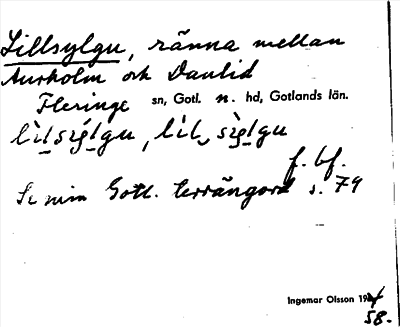 Lillsylgu, ränna mellan
Aurholm och Dantid
Fleringe sn, Gotl. n. hd, Gotlands län.
lìlsýlgu, lìl sỳlgu
f. bf.
Se min Gotl. terrängord s. 79
Ingemar Olsson 19
58.